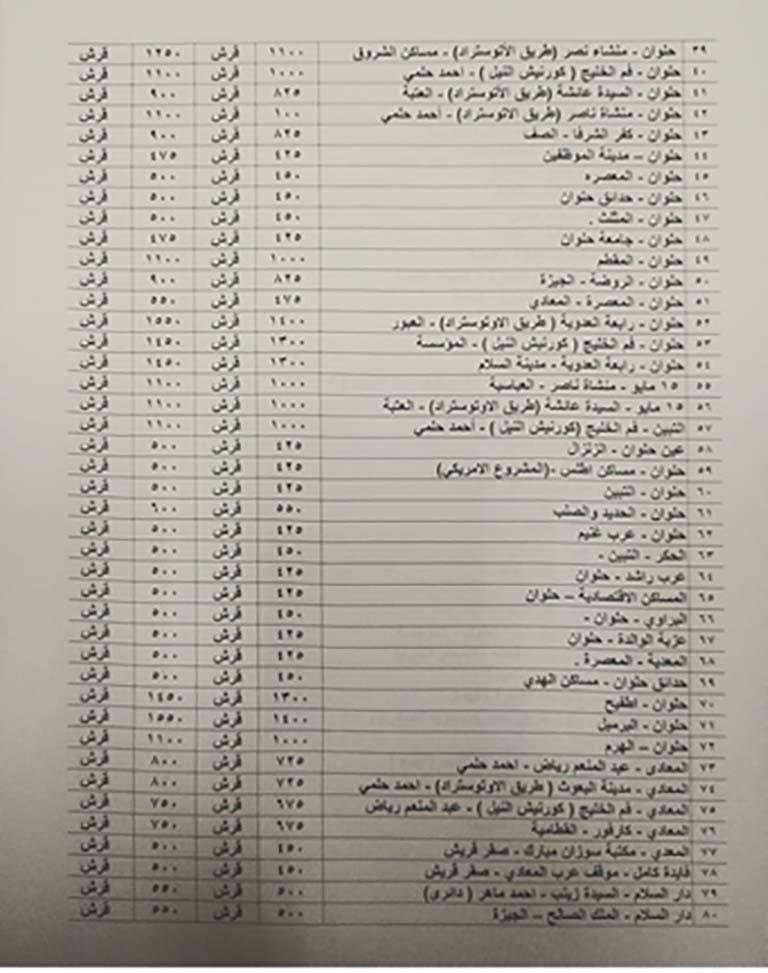 ٣٩ حلوان - منشاه نصر (طريق الأتوستراد) - مساكن الشروق ١١٠٠ قرش ١٢٥٠ قرش
٤٠ حلوان - فم الخليج ( كورنيش النيل ) - احمد حلمي ١٠٠٠ قرش ١١٠٠ قرش
٤١ حلوان - السيدة عائشة (طريق الأتوستراد) - العتبة ٨٢٥ قرش ٩٠٠ قرش
٤٢ حلوان - منشاة ناصر (طريق الاتوستراد) - أحمد حلمي ١٠٠ قرش ١١٠٠ قرش
٤٣ حلوان - كفر الشرفا - الصف ٨٢٥ قرش ٩٠٠ قرش
٤٤ حلوان – مدينة الموظفين ٤٢٥ قرش ٤٧٥ قرش
٤٥ حلوان - المعصره ٤٥٠ قرش ٥٠٠ قرش
٤٦ حلوان - حدائق حلوان ٤٥٠ قرش ٥٠٠ قرش
٤٧ حلوان - المثلث . ٤٥٠ قرش ٥٠٠ قرش
٤٨ حلوان - جامعة حلوان ٤٢٥ قرش ٤٧٥ قرش
٤٩ حلوان - المقطم ١٠٠٠ قرش ١١٠٠ قرش
٥٠ حلوان - الروضة - الجيزة ٨٢٥ قرش ٩٠٠ قرش
٥١ حلوان - المعصرة - المعادي ٤٧٥ قرش ٥٥٠ قرش
٥٢ حلوان - رابعة العدوية ( طريق الاوتوستراد) - العبور ١٤٠٠ قرش ١٥٥٠ قرش
٥٣ حلوان - فم الخليج ( كورنيش النيل ) - المؤسسة ١٣٠٠ قرش ١٤٥٠ قرش
٥٤ حلوان - رابعة العدوية - مدينة السلام ١٣٠٠ قرش ١٤٥٠ قرش
٥٥ ١٥ مايو - منشاة ناصر - العباسية ١٠٠٠ قرش ١١٠٠ قرش
٥٦ ١٥ مايو - السيدة عائشة (طريق الاوتوستراد) - العتبة ١٠٠٠ قرش ١١٠٠ قرش
٥٧ التبين - فم الخليج (كورنيش النيل ) - أحمد حلمي ١٠٠٠ قرش ١١٠٠ قرش
٥٨ عين حلوان - الزلزال ٤٢٥ قرش ٥٠٠ قرش
٥٩ حلوان - مساكن اطلس -(المشروع الامريكي) ٤٢٥ قرش ٥٠٠ قرش
٦٠ حلوان - التبين ٤٢٥ قرش ٥٠٠ قرش
٦١ حلوان - الحديد والصلب ٥٥٠ قرش ٦٠٠ قرش
٦٢ حلوان - عرب غنيم ٤٢٥ قرش ٥٠٠ قرش
٦٣ الحكر - التبين - ٤٥٠ قرش ٥٠٠ قرش
٦٤ عرب راشد - حلوان ٤٢٥ قرش ٥٠٠ قرش
٦٥ المساكن الاقتصادية – حلوان ٤٢٥ قرش ٥٠٠ قرش
٦٦ البراوي - حلوان - ٤٥٠ قرش ٥٠٠ قرش
٦٧ عزبة الوالدة - حلوان ٤٢٥ قرش ٥٠٠ قرش
٦٨ المعدية - المعصرة . ٤٢٥ قرش ٥٠٠ قرش
٦٩ حدائق حلوان - مساكن الهدي ٤٥٠ قرش ٥٠٠ قرش
٧٠ حلوان - اطفيح ١٣٠٠ قرش ١٤٥٠ قرش
٧١ حلوان - البرميل ١٤٠٠ قرش ١٥٥٠ قرش
٧٢ حلوان – الهرم ١٠٠٠ قرش ١١٠٠ قرش
٧٣ المعادى - عبد المنعم رياض - احمد حلمي ٧٢٥ قرش ٨٠٠ قرش
٧٤ المعادي - مدينة البعوث ( طريق الاوتوستراد) - احمد حلمي ٧٢٥ قرش ٨٠٠ قرش
٧٥ المعادي - فم الخليج ( كورنيش النيل ) - عبد المنعم رياض ٦٧٥ قرش ٧٥٠ قرش
٧٦ المعادي - كارفور - القطامية ٦٧٥ قرش ٧٥٠ قرش
٧٧ المعدي - مكتبة سوزان مبارك - صقر قريش ٤٥٠ قرش ٥٠٠ قرش
٧٨ فايدة كامل - موقف عرب المعادي - صقر قريش ٤٥٠ قرش ٥٠٠ قرش
٧٩ دار السلام - السيدة زينب - احمد ماهر ( دائرى) ٥٠٠ قرش ٥٥٠ قرش
٨٠ دار السلام - الملك الصالح – الجيزة ٥٠٠ قرش ٥٥٠ قرش